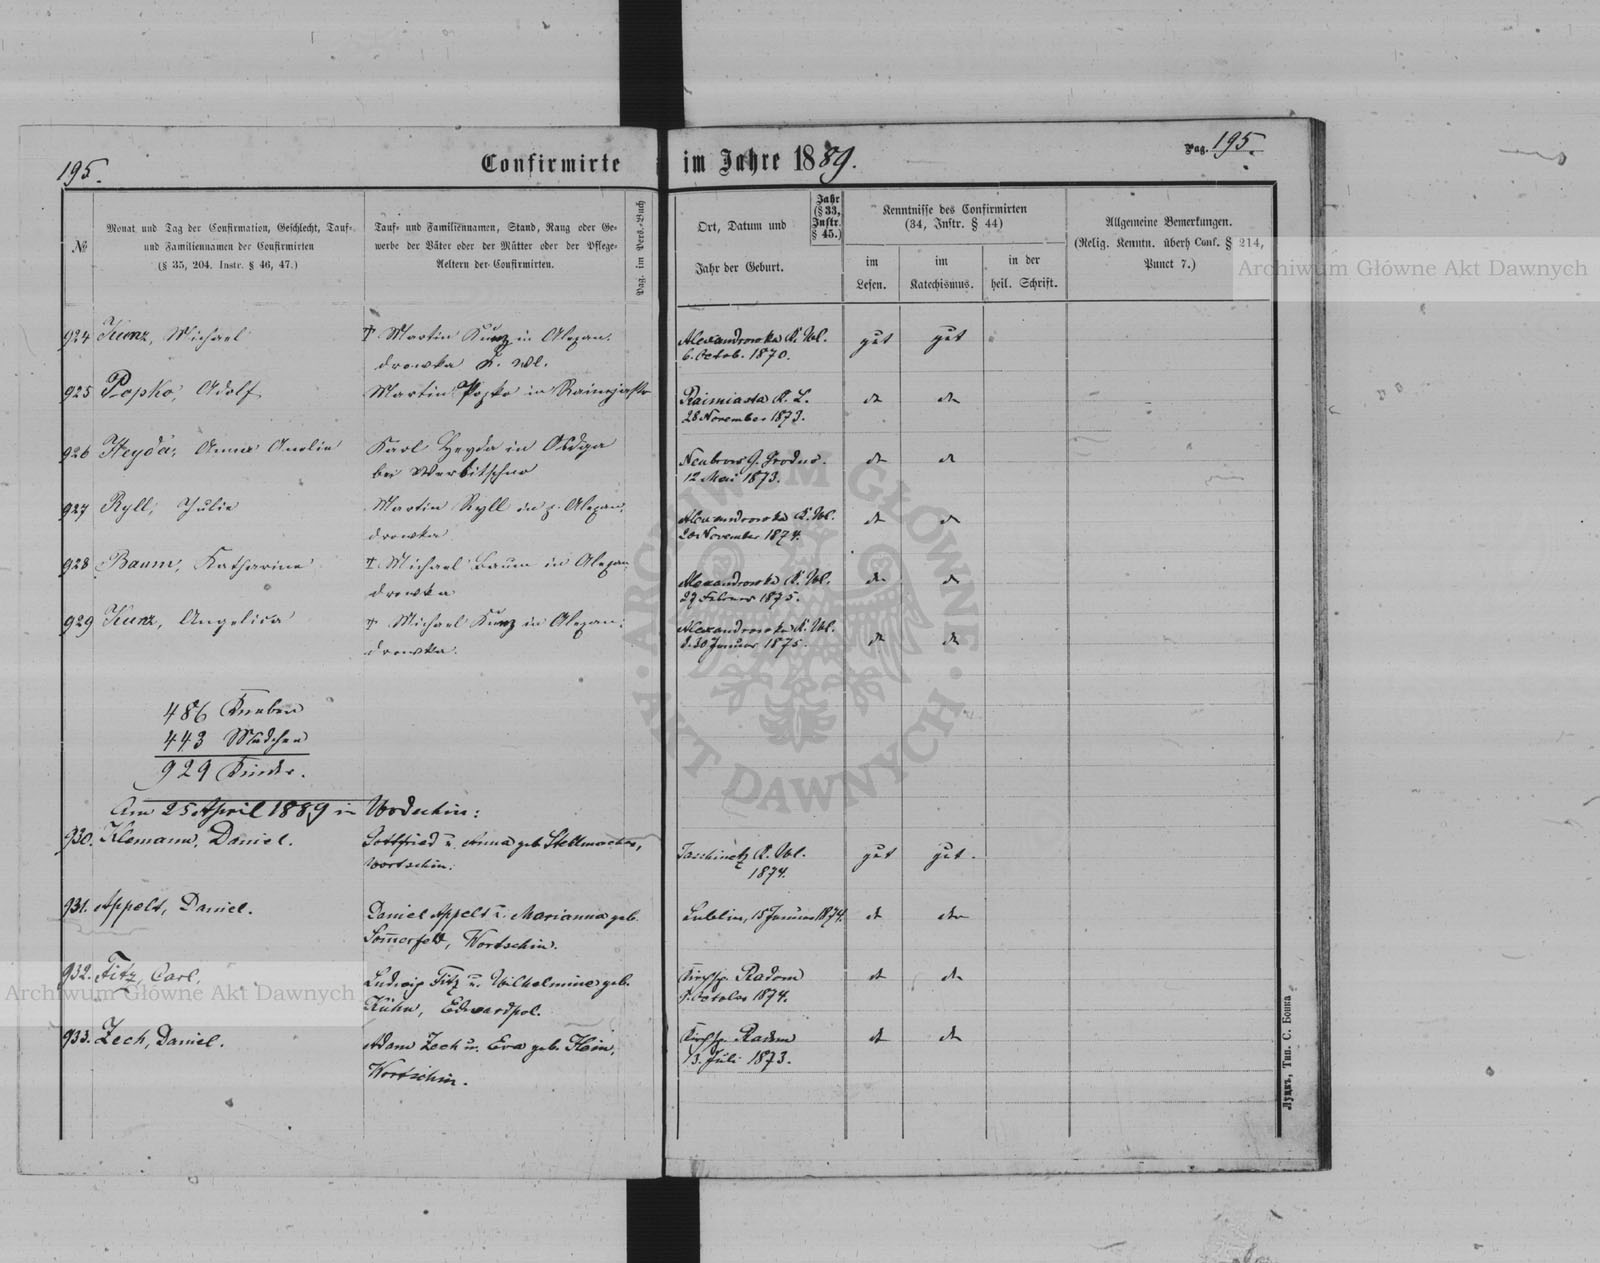 195.
Confirmirte im Jahre 1889.
Pag. 195.
№
Monat und Tag der Confirmation, Geschlecht, Tauf-
und Familiennamen der Confirmirten
(§ 35, 204. Instr. § 46, 47.)
Tauf- und Familiennamen, Stand, Rang oder Ge-
werbe der Väter oder der Mütter oder der Pflege-
Aeltern der Confirmirten.
Pag. im Pers.-Buch
Ort, Datum und
Jahr der Geburt.
Jahr
(§ 33,
Instr.
§ 45.)
Kenntnisse des Confirmirten
(34, Instr. § 44)
im
Lesen.
im
Katechismus.
in der
heil. Schrift.
Allgemeine Bemerkungen.
(Relig. Kenntn. überh. Conf. § 214,
Punct 7.)
924 Kunz, Michael
† Martin Kunz in Alexan-
drowka K. Wl.
Alexandrowka K. Wl.
6. Octob. 1870.
gut gut
925 Popko, Adolf
Martin Popko in Raimiasto
Raimiasta K. L.
28 November 1873.
dt dt
926 Heyda, Anna
Karl Heyda in
bei
Neubrow G. Grodno.
12 Mai 1873.
dt dt
927 Ryll, Julie
Martin Ryll in Alexan-
drowka
Alexandrowka K. Wl.
November 1874.
dt dt
928 Baum, Katharine
† Michael Baum in Alexan-
drowka
Alexandrowka K. Wl.
27 Februar 1875.
dt dt
929 Kunz, Angelica
† Michael Kunz in Alexan-
drowka.
Alexandrowka K. Wl.
d. 30 Januar 1875.
dt dt
486 Knaben
443 Mädchen
929 Kinder.
Am 25 April 1889 in
930. Klemann, Daniel.
Gottfried u. Anna geb. Stellmacher,
Wortschin.
K. Wl.
1874.
gut gut.
931. Appelt, Daniel.
Daniel Appelt u. Marianna geb.
Somerfeld, Wortschin.
Lublin, 15 Januar 1874.
dt dt
932. Fitz, Carl.
Ludwig Fitz u. Wilhelmine geb.
Kühn, Edwardpol.
Kirchsp. Radom
October 1874.
dt dt
933. Zech, Daniel.
Adam Zech u. Eva geb. Hein,
Wortschin.
Kirchsp. Radom
13. Juli 1873.
dt dt
Луцкъ, Тип. С. Бонка
Archiwum Główne Akt Dawnych
Archiwum Główne Akt Dawnych
ARCHIWUM GŁÓWNE
AKT DAWNYCH